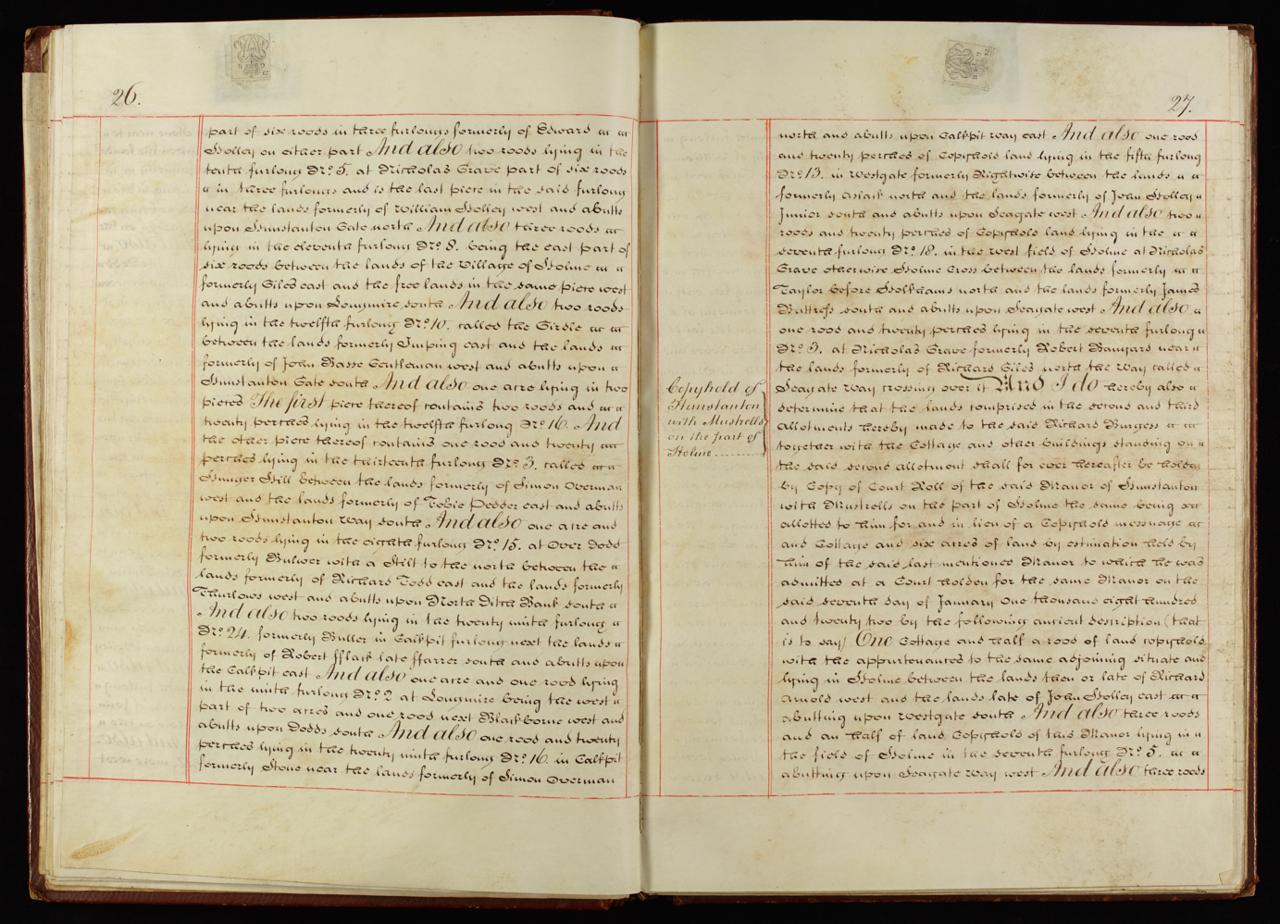 26.
part of six roods in three furlongs formerly of Edward
Holley on either part And also two roods lying in the
tenth furlong No. 5. at Nicholas Grave part of six roods
in three furlongs and is the last piece in the said furlong
near the lands formerly of William Holley west and abutts
upon Hunstanton Gate north And also three roods
lying in the eleventh furlong No. 8. being the east part of
six roods between the lands of the Village of Holme
formerly Giles east and the free lands in the same piece west
and abutts upon Longmire south And also two roods
lying in the twelfth furlong No. 10. called the Girdle
between the lands formerly Imping east and the lands
formerly of John Basse Gentleman west and abutts upon
Hunstanton Gate south And also one acre lying in two
pieces The first piece thereof contains two roods and
twenty perches lying in the twelfth furlong No. 16. And
the other piece thereof contains one rood and twenty
perches lying in the thirteenth furlong No. 3. called
Hunger Hill between the lands formerly of Simon Overman
west and the lands formerly of Tobie Pedder east and abutts
upon Hunstanton Way south And also one acre and
two roods lying in the eighth furlong No. 15. at Over Dodd
formerly Bulwer with a Stilt to the north between the
lands formerly of Richard Todd east and the lands formerly
Thurlows west and abutts upon North Ditch Bank south
And also two roods lying in the twenty ninth furlong
No. 24. formerly Butler in Calkpit furlong next the lands
formerly of Robert fflack late ffarrer south and abutts upon
the Calkpit east And also one acre and one rood lying
in the ninth furlong No. 2 at Longmire being the west
part of two acres and one rood next Blackborne west and
abutts upon Dodds south And also one rood and twenty
perches lying in the twenty ninth furlong No. 16. in Calkpit
formerly Stone near the lands formerly of Simon Overman
27.
north and abutts upon Calkpit Way east And also one rood
and twenty perches of Copyhold land lying in the fifth furlong
No. 13. in Westgate formerly Rightwise between the lands
formerly Asiack north and the lands formerly of John Holley
Junior south and abutts upon Seagate west And also two
roods and twenty perches of Copyhold land lying in the
seventh furlong No. 18. in the west field of Holme at Nicholas
Grave otherwise Holme Cross between the lands formerly
Taylor before Holkhams north and the lands formerly James
Battress south and abutts upon Seagate west And also
one rood and twenty perches lying in the seventh furlong
No. 9. at Nicholas Grave formerly Robert Banyard near
the lands formerly of Richard Giles north the way called
Seagate Way crossing over it And I do hereby also
determine that the lands comprised in the second and third
allotments hereby made to the said Richard Burgess
together with the Cottage and other buildings standing on
the said second allotment shall for ever hereafter be holden
by Copy of Court Roll of the said Manor of Hunstanton
with Mustrells on the part of Holme the same being
allotted to him for and in lieu of a Copyhold messuage
and Cottage and six acres of land by estimation held by
him of the said last mentioned Manor to which he was
admitted at a Court holden for the same Manor on the
said seventh day of January One thousand eight hundred
and twenty two by the following ancient description (that
is to say) One Cottage and half a rood of land copyhold
with the appurtenances to the same adjoining situate and
lying in Holme between the lands then or late of Richard
Arnold west and the lands late of John Holley east
abutting upon Westgate south And also three roods
and an half of land Copyhold of this Manor lying in
the field of Holme in the seventh furlong No. 5.
abutting upon Seagate Way west And also three roods
Copyhold of
Hunstanton
with Mustrells
on the part of
Holme